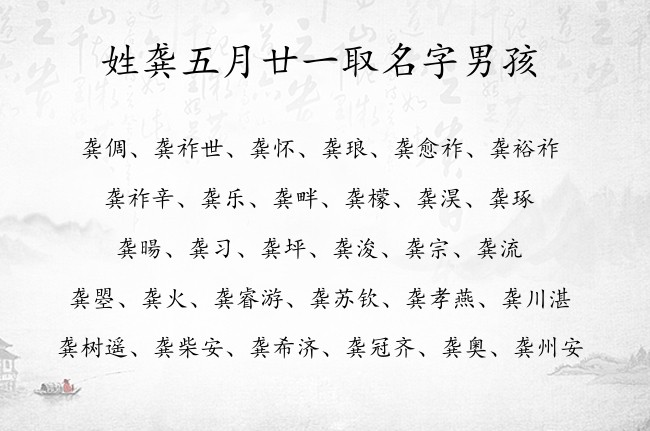 姓龚五月廿一取名字男孩
龚倜、龚祚世、龚怀、龚琅、龚愈祚、龚裕祚
龚祚辛、龚乐、龚畔、龚檬、龚淏、龚琢
龚暘、龚习、龚坪、龚浚、龚宗、龚流
龚曌、龚火、龚睿游、龚苏钦、龚孝燕、龚川湛
龚树遥、龚柴安、龚希济、龚冠齐、龚奥、龚州安